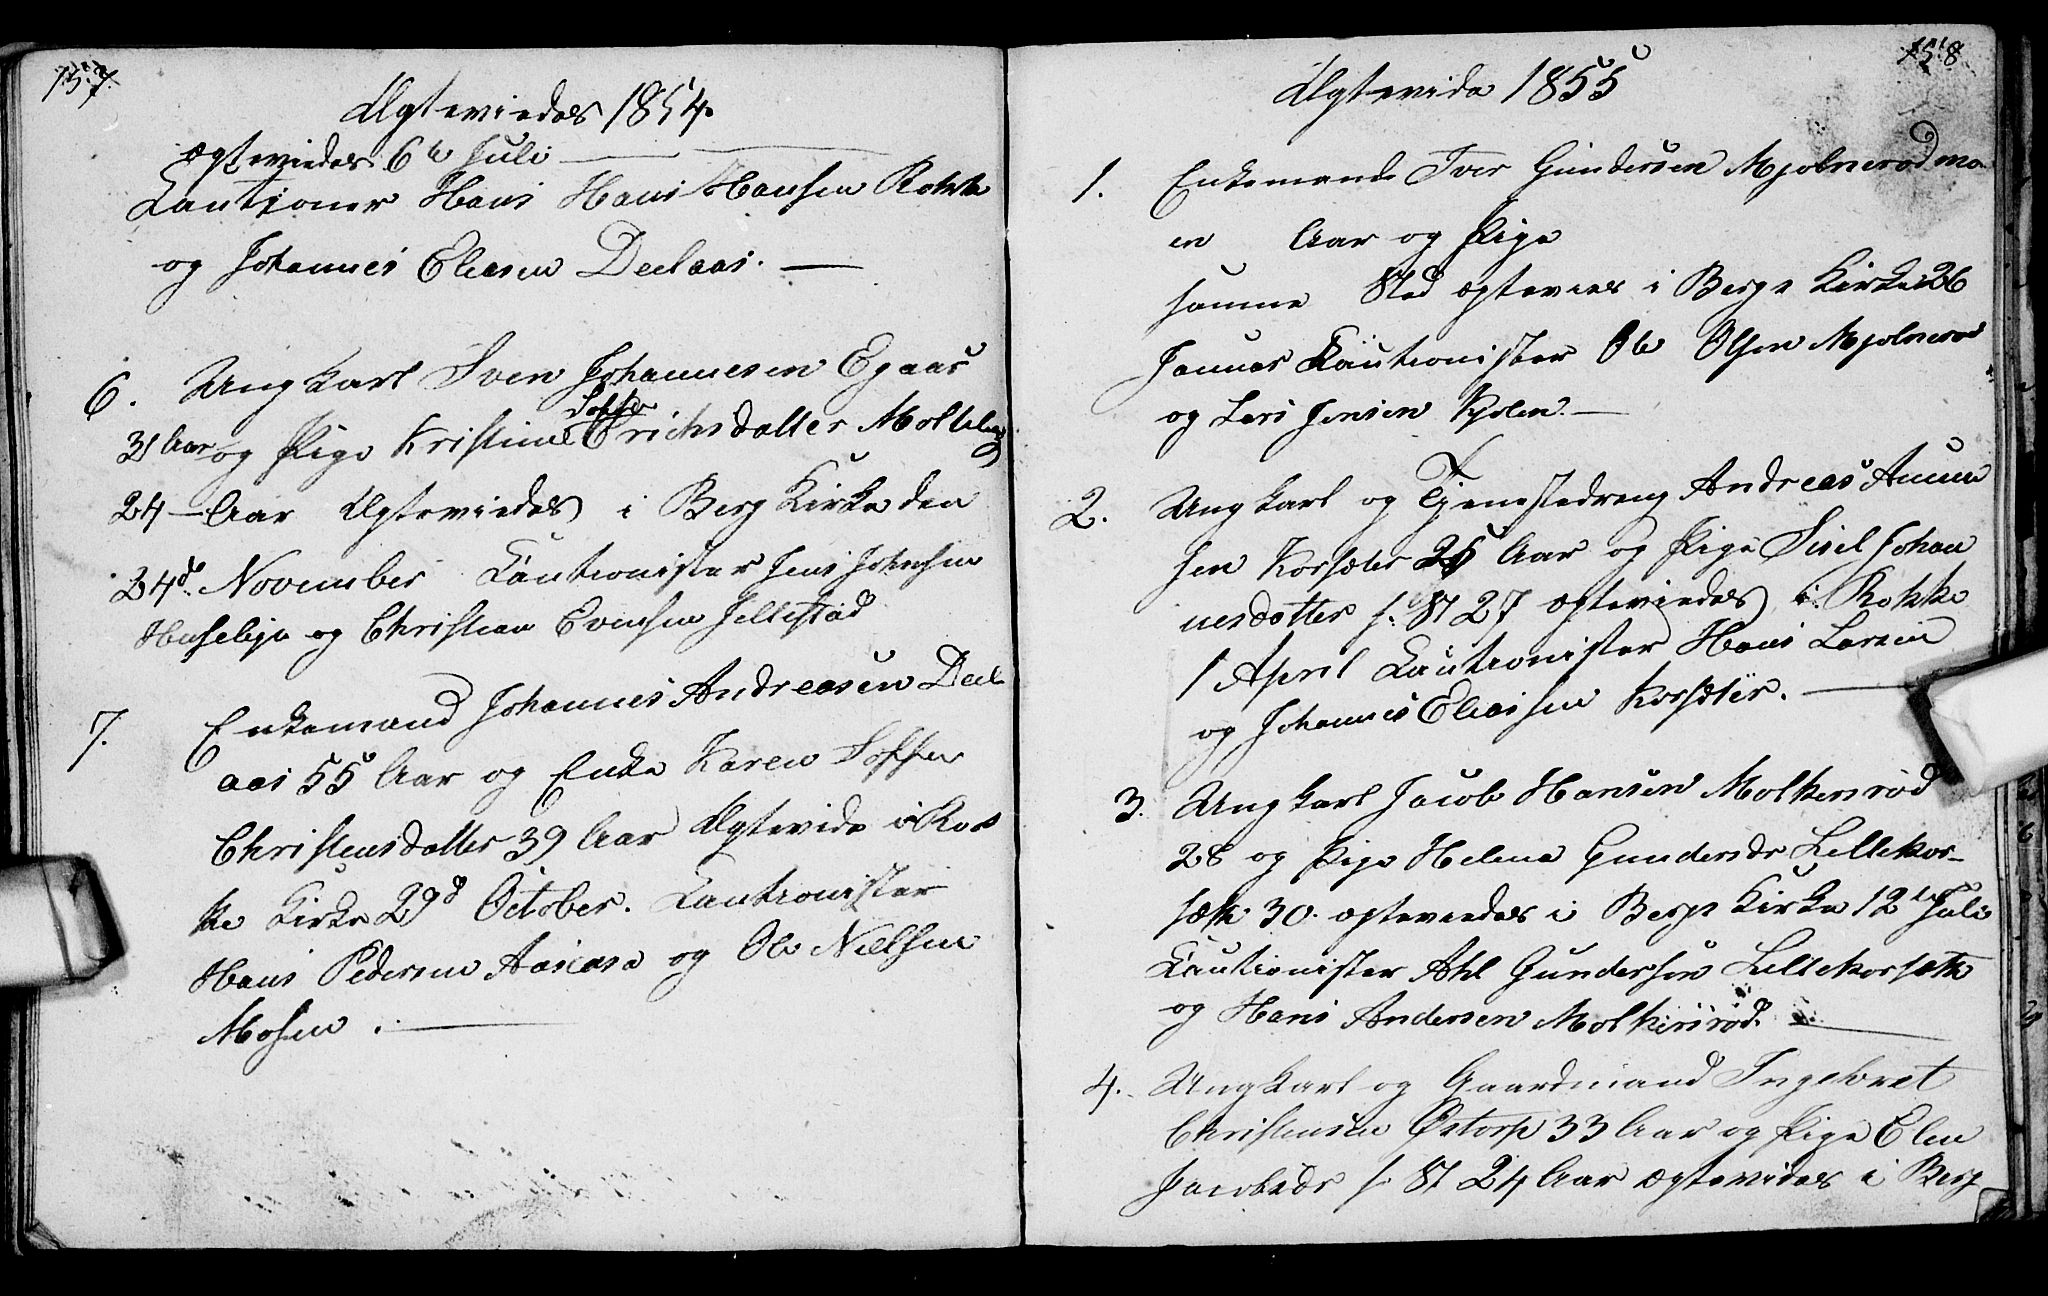 157.
Ægteviedes 1854.
ægteviedes 6te Juli
Cautioner Hans Hans Hansen Rokke
og Johannes Eliasen Deelaas.
6. Ungkarl Sven Johannesen Egaas
31 Aar og Pige Kristine Soffie Erichsdatter Moltebeg
24 Aar Ægteviedes i Berg Kirke den
24de November Cautionister Jens Johnsen
Huseleje og Christian Evensen Jellestad
7. Enkemand Johannes Andreasen Deel
aas 55 Aar og Enke Karen Soffie
Christensdatter 39 Aar Ægtevide i Rok
ke Kirke 29d October. Cautionister
Hans Pedersen Aasen og Ole Nielsen
Mosen.
158
Ægtevide 1855
1. Enkemande Iver Gundersen Mjølnerød
en Aar og Pige
samme Sted ægtevies i Bergs Kirke 26
Januar Cautionister Ole Olsen Mjølnerød
og Lars Jensen Kjølen.
2. Ungkarl og Tjenestedreng Andreas Amun
sen Korsæter 25 Aar og Pige Sisel Johan
nesdatter s. St 27 ægteviedes i Rokke
1 April Cautionister Hans Larsen
og Johannes Eliassen Korsæter.
3. Ungkarl Jacob Hansen Molkersrød
28 og Pige Helena Gundersdr Lellekor-
sæth 30. ægteviedes i Bergs Kirke 12te Juli
Cautionister Ahl Gundersen Lellekorsæth
og Hans Andersen Molkersrød.
4. Ungkarl og Gaardmand Ingebret
Christensen Østorp 33 Aar og Pige Elen
Jacobsdr s. St 24 Aar ægtevides i Berg